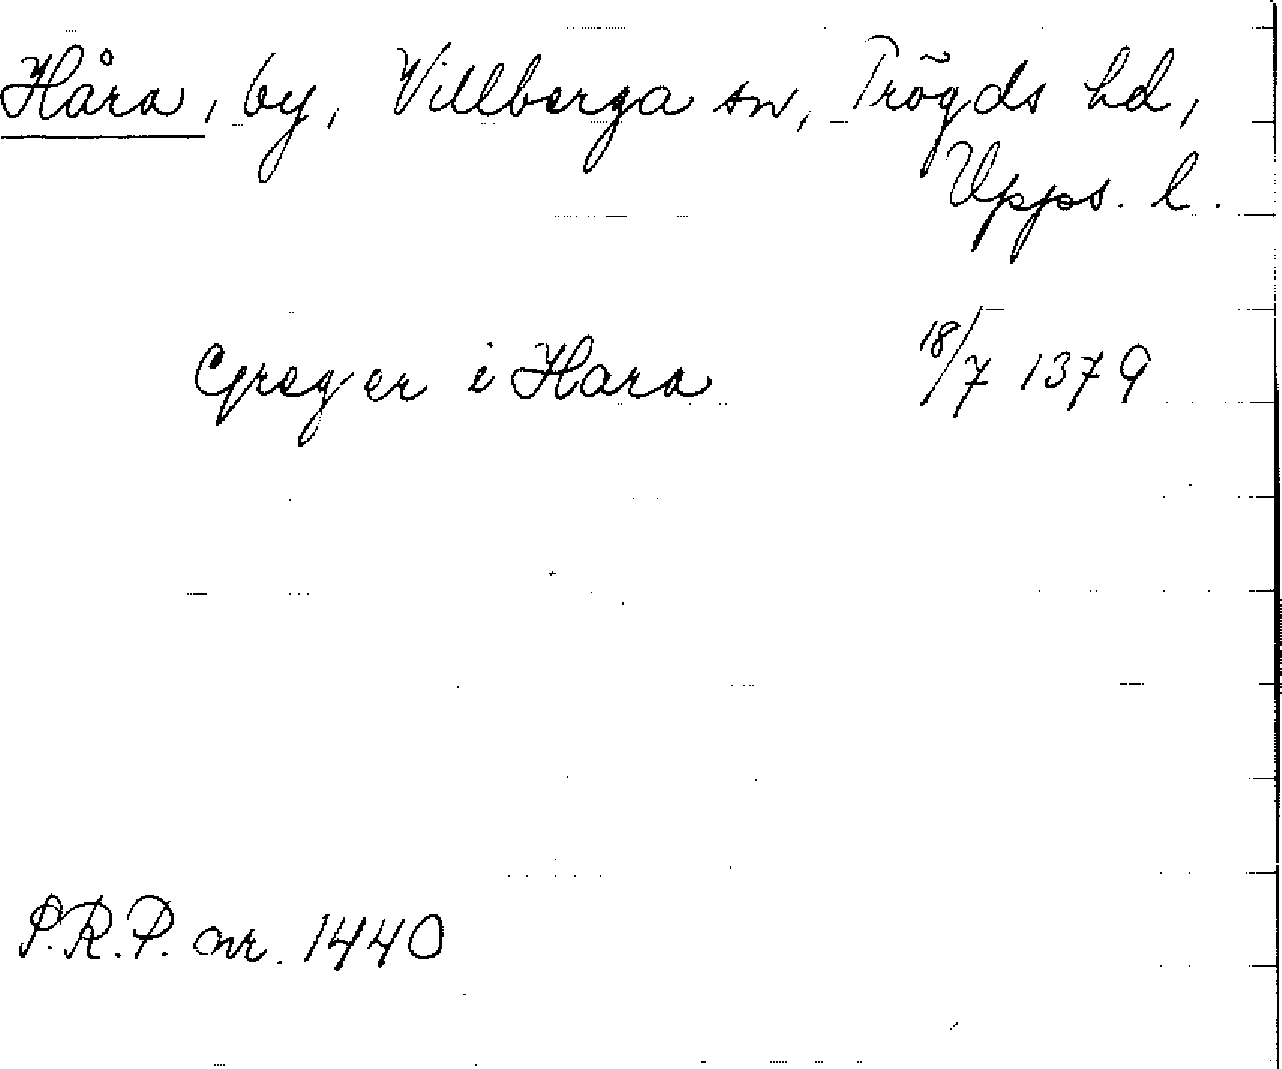 Håra, by, Villberga sn, Trögds hd,
Upps. l.
Greger i Hara 18/7 1379
P.R.P. nr. 1440